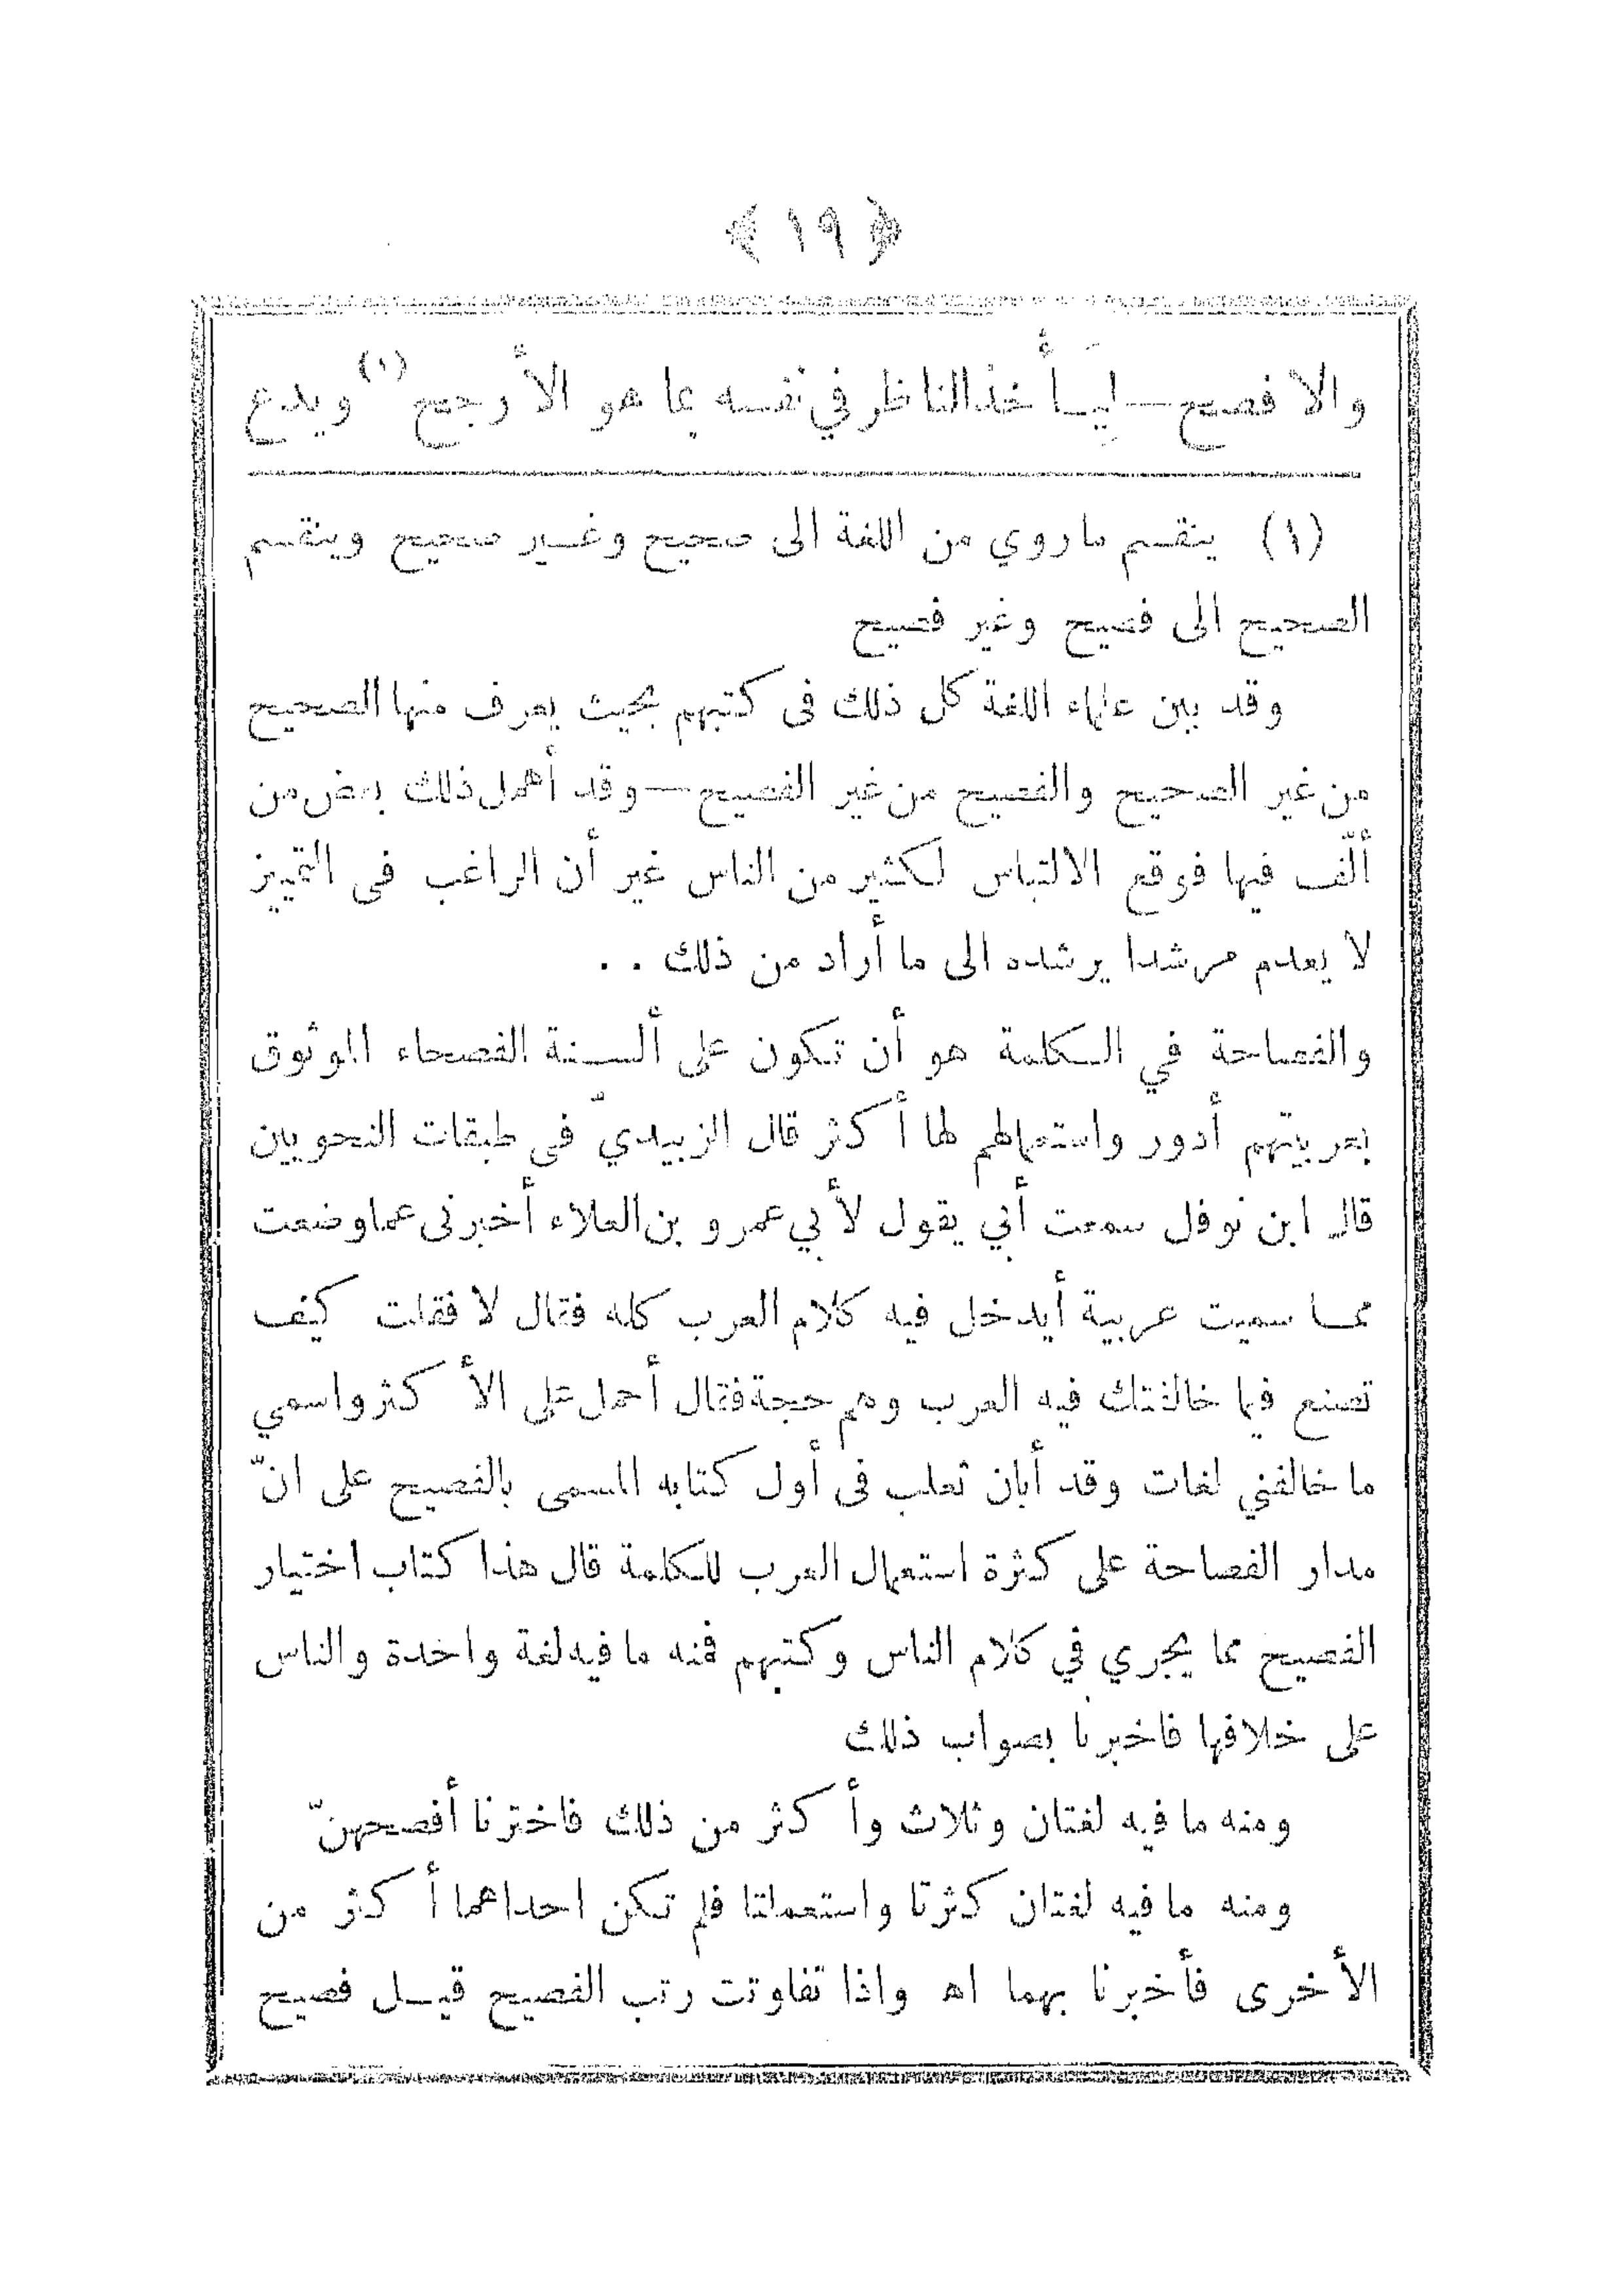 ﴿ ١٩ ﴾
والافصح — لِيَأخذ الناظر في نفسه بما هو الأرجح (١) ويدع
(١) ينقسم ماروي من اللغة الى صحيح وغير صحيح وينقسم
الصحيح الى فصيح وغير فصيح
وقد بين علماء اللغة كل ذلك فى كتبهم بحيث يعرف منها الصحيح
من غير الصحيح والفصيح من غير الفصيح — وقد أهمل ذلك بعض من
ألّف فيها فوقع الالتباس لكثير من الناس غير أن الراغب فى التمييز
لا يعدم مرشدا يرشده الى ما أراد من ذلك . .
والفصاحة في الكلمة هو أن تكون على ألسنة الفصحاء الموثوق
بعربيتهم أدور واستعمالهم لها أكثر قال الزبيديّ فى طبقات النحويين
قال ابن نوفل سمعت أبي يقول لأبي عمرو بن العلاء أخبرنى عما وضعت
مما سميت عربية أيدخل فيه كلام العرب كله فقال لا فقلت كيف
تصنع فيما خالفتك فيه العرب وهم حجة فقال أحمل على الأكثر واسمي
ما خالفني لغات وقد أبان ثعلب فى أول كتابه المسمى بالفصيح على انّ
مدار الفصاحة على كثرة استعمال العرب للكلمة قال هذا كتاب اختيار
الفصيح مما يجري في كلام الناس وكتبهم فمنه ما فيه لغة واحدة والناس
على خلافها فاخبرنا بصواب ذلك
ومنه ما فيه لغتان وثلاث وأكثر من ذلك فاخترنا أفصحهنّ
ومنه ما فيه لغتان كثرتا واستعملتا فلم تكن احداهما أكثر من
الأخرى فأخبرنا بهما اه واذا تفاوتت رتب الفصيح قيل فصيح